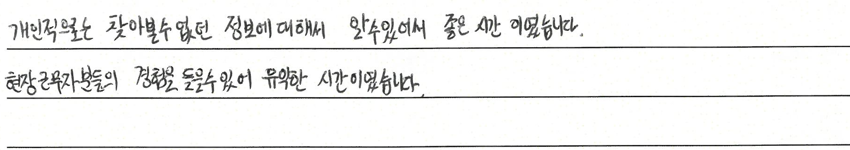 개인적으로는 찾아볼수 없던 정보에 대해서 알수있어서 좋은 시간 이였습니다.
현장근무자분들의 경험을 들을수있어 유익한 시간이였습니다.